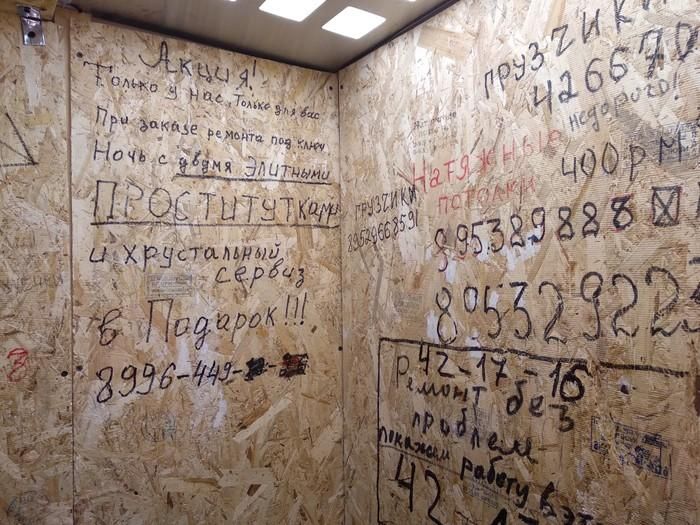 Акция!
Только у нас. Только для вас
При заказе ремонта под ключ
Ночь с двумя ЭЛИТНЫМИ
ПРОСТИТУТКАМИ
и хрустальный
сервиз
в Подарок!!!
8996-449-
ГРУЗЧИКИ
89529668591
ГРУЗЧИКИ
426670
недорого!
Натяжные
потолки
400р М
8953898888
895329223
42-17-16
Ремонт без
проблем
покажем работу в
42
3